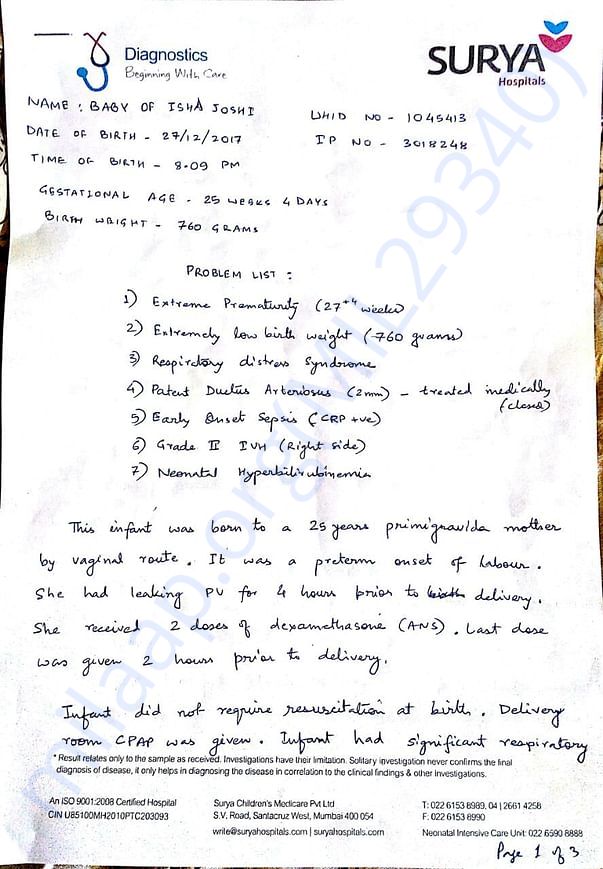 Diagnostics
Beginning With Care
SURYA
Hospitals
NAME : BABY OF ISHA JOSHI
UHID NO - 1045413
DATE OF BIRTH - 27/12/2017
IP NO - 3018248
TIME OF BIRTH - 8.09 PM
GESTATIONAL AGE - 25 WEEKS 4 DAYS
BIRTH WRIGHT - 760 GRAMS
PROBLEM LIST :
1) Extreme Prematurity (27+4 weeks)
2) Extremely low birth weight (-760 grams)
3) Respiratory distress Syndrome
4) Patent Ductus Arteriosus (2mm) - treated medically
(closed)
5) Early Onset Sepsis (CRP +ve)
6) Grade II IVH (Right side)
7) Neonatal Hyperbilirubinemia
This infant was born to a 25 years primigravida mother
by vaginal route. It was a preterm onset of labour.
She had leaking PV for 4 hours prior to birth delivery.
She received 2 doses of dexamethasone (ANS). Last dose
was given 2 hours prior to delivery.
Infant did not require resuscitation at birth. Delivery
room CPAP was given. Infant had significant respiratory
* Result relates only to the sample as received. Investigations have their limitation. Solitary investigation never confirms the final
diagnosis of disease, it only helps in diagnosing the disease in correlation to the clinical findings & other Investigations.
An ISO 9001:2008 Certified Hospital
CIN U85100MH2010PTC203093
Surya Children's Medicare Pvt Ltd
S.V. Road, Santacruz West, Mumbai 400 054
write@suryahospitals.com | suryahospitals.com
T: 022 6153 8989, 04 | 2661 4258
F: 022 6153 8990
Neonatal Intensive Care Unit: 022 6590 8888
Page 1 of 3
milaap.org(MIL29340)